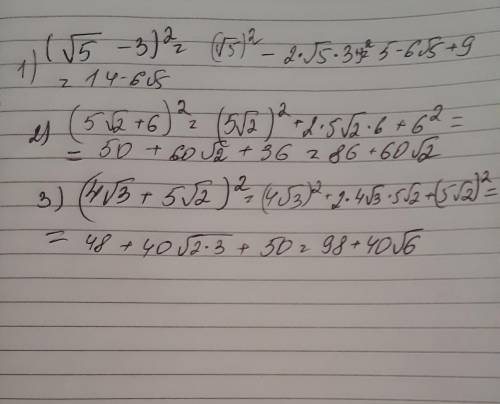 1) (√5 - 3)² = (√5)² - 2·√5·3+3² = 5-6√5+9
= 14-6√5
2) (5√2+6)² = (5√2)² + 2·5√2·6 + 6² =
= 50 + 60√2 + 36 = 86+60√2
3) (4√3 + 5√2)² = (4√3)² + 2·4√3·5√2+(5√2)² =
= 48 + 40√2·3 + 50 = 98+40√6